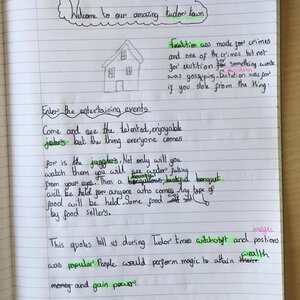 Welcome to our amazing tudor town
Exutition was made for crimes
and one of the crimes but not
for exutition for something worse
was gossiping. Exutition was for
if you stole from the king.
Enter the entertaining events
Come and see the talented, enjoyable
jesters but the thing everyone comes
for is the jugglers. Not only will you
watch them you will see water falling
from your eyes. Then a banquet
will be held for anyone who comes. Any type of
food will be held. Some food
by food sellers.
magic
This quotes tell us during Tudor times witchcraft and postions
wealth
was popular. People would perform magic to attain
money and gain power.